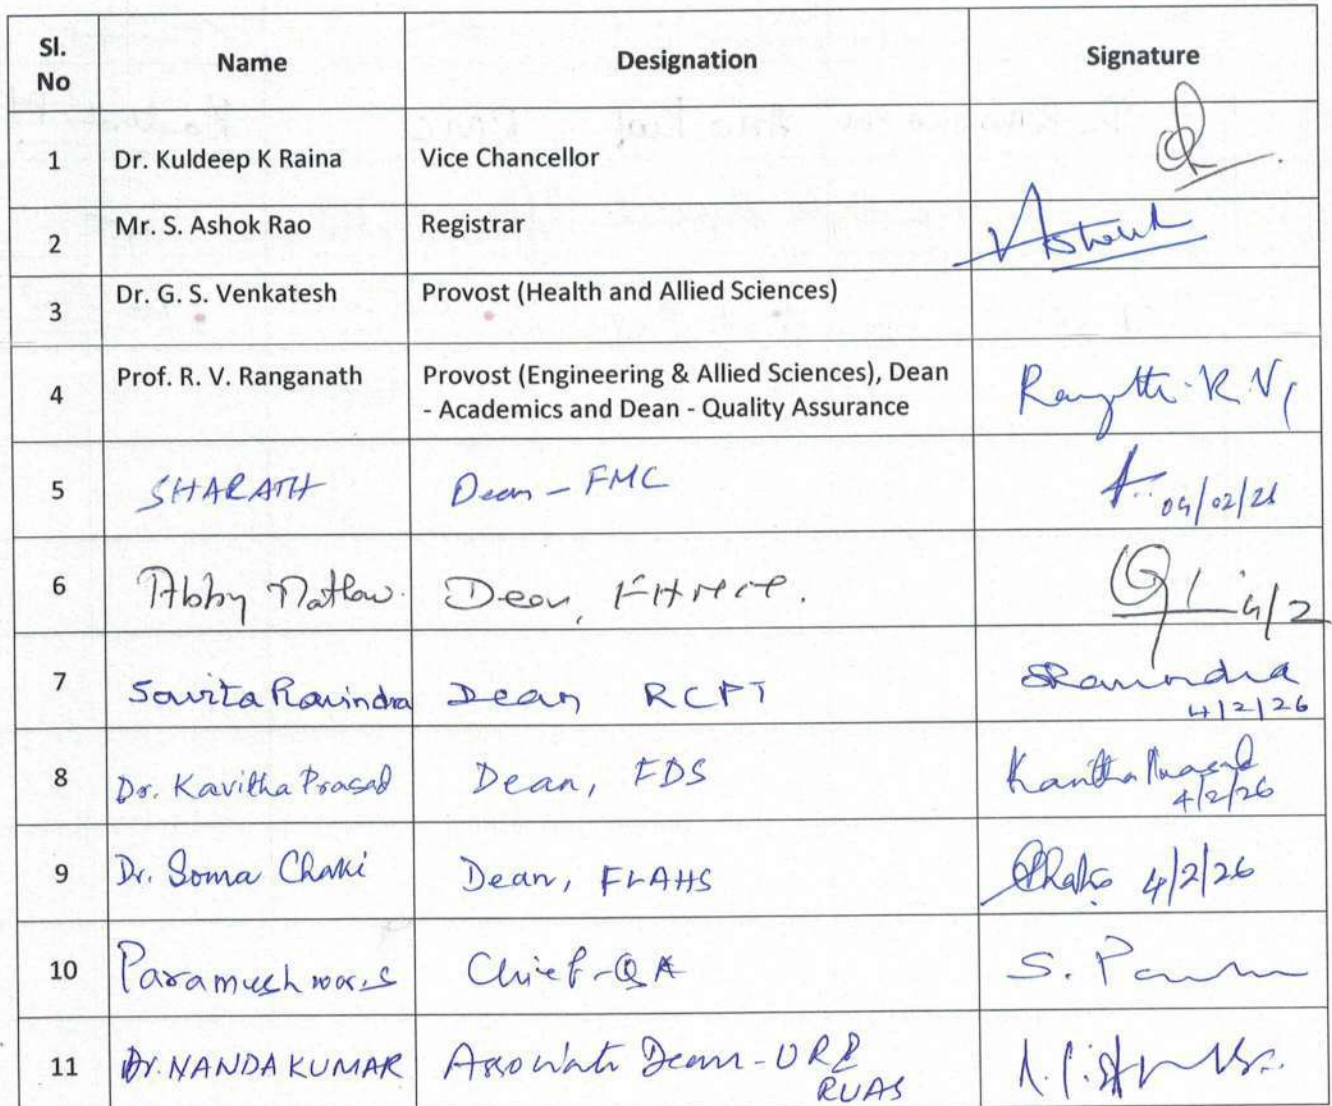 Sl. No Name Designation Signature
1 Dr. Kuldeep K Raina Vice Chancellor
2 Mr. S. Ashok Rao Registrar Ashok
3 Dr. G. S. Venkatesh Provost (Health and Allied Sciences)
4 Prof. R. V. Ranganath Provost (Engineering & Allied Sciences), Dean
- Academics and Dean - Quality Assurance
5 SHARATH Dean - FMC 04/02/26
6 Abby Mathew. Dean, FHMCT. 4/2
7 Savita Ravindra Dean RCPT SRavindra
4/2/26
8 Dr. Kavitha Prasad Dean, FDS Kavitha Prasad
4/2/26
9 Dr. Soma Chaki Dean, FLAHS 4/2/26
10 Parameshwar.S Chief-QA
11 Dr. NANDA KUMAR Associate Dean-
RUAS